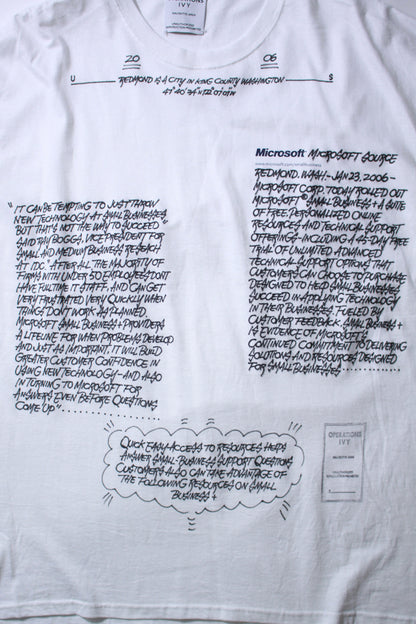 OPERATIONS
IVY
20 06
U S
REDMOND IS A CITY IN KING COUNTY WASHINGTON
"IT CAN BE TEMPTING TO JUST THROW
NEW TECHNOLOGY AT SMALL BUSINESSES,
BUT THAT'S NOT THE WAY TO SUCCEED"
SAID RAY BOGGS, VICE PRESIDENT FOR
SMALL AND MEDIUM BUSINESS RESEACH
AT IDC. AFTER ALL THE MAJORITY OF
FIRMS WITH UNDER 50 EMPLOYEES DON'T
HAVE FULL TIME IT STAFF, AND CAN GET
VERY FRUSTRATED VERY QUICKLY WHEN
THINGS DON'T WORK AS PLANNED.
MICROSOFT SMALL BUSINESS + PROVIDERS
A LIFELINE FOR WHEN PROBLEMS DEVELOP
AND JUST AS IMPORTANT. IT WILL BUILD
GREATER CUSTOMER CONFIDENCE IN
USING NEW TECHNOLOGY - AND ALSO
IN TURNING TO MICROSOFT FOR
ANSWERS EVEN BEFORE QUESTIONS
COME UP"
Microsoft MICROSOFT SOURCE
REDMOND. WASH - JAN 23, 2006 -
MICROSOFT CORP. TODAY ROLLED OUT
MICROSOFT® SMALL BUSINESS + A SUITE
OF FREE. PERSONALIZED ONLINE
RESOURCES AND TECHNICAL SUPPORT
OFFERINGS - INCLUDING A 45-DAY FREE
TRIAL OF UNLIMITED ADVANCED
TECHNICAL SUPPORT OPTIONS THAT
CUSTOMERS CAN CHOOSE TO PURCHASE
DESIGNED TO HELP SMALL BUSINESSES
SUCCEED IN APPLYING TECHNOLOGY
IN THEIR BUSINESSES. FUELED BY
CUSTOMER FEEDBACK. SMALL BUSINESS +
IS EVIDENCE OF MICROSOFT
CONTINUED COMMITMENT TO DELIVERING
SOLUTIONS AND RESOURCES DESIGNED
FOR SMALL BUSINESSES
QUICK EASY-ACCESS TO RESOURCES HELPS
ANSWER SMALL-BUSINESS SUPPORT QUESTIONS
CUSTOMERS ALSO CAN TAKE ADVANTAGE OF
THE FOLLOWING RESOURCES ON SMALL
BUSINESS +
OPERATIONS
IVY